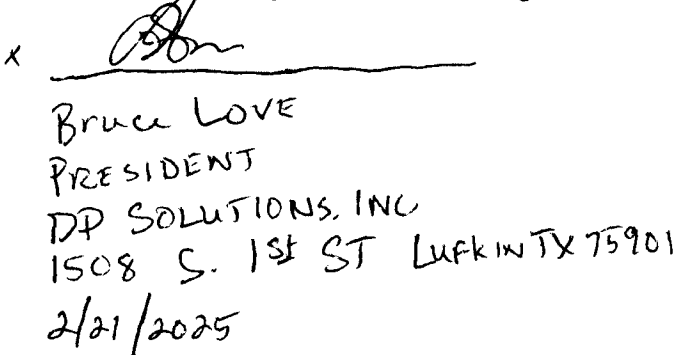 x
Bruce LOVE
PRESIDENT
DP SOLUTIONS, INC
1508 S. 1st ST LUFKIN TX 75901
2/21/2025